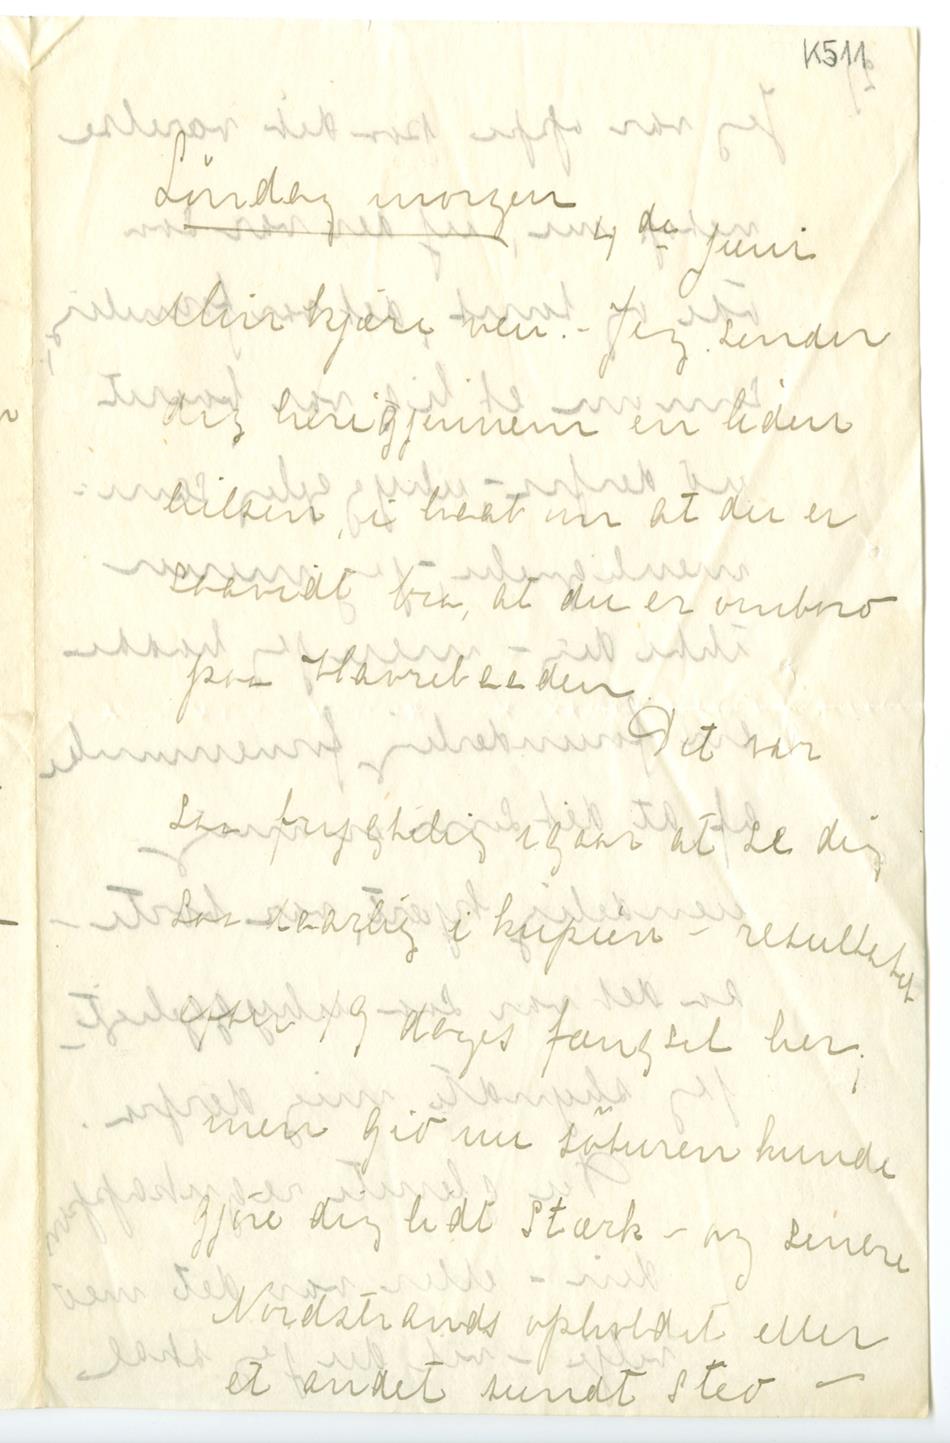 K511
Søndag morgen
4 de Juni
Min kjære ven. - Jeg sender
dig herigjennem en liden
hilsen, i haab om at du er
saavidt bra, at du er ombord
paa Havrebeeden.
Det var
saa frygtelig igaar at se dig
saa daarlig i kupeen - resultatet
efter 19 dages fængsel her;
men gid nu søturen kunde
gjøre dig lidt stærk - og senere
Nordstrands opholdet eller
et andet sundt sted -